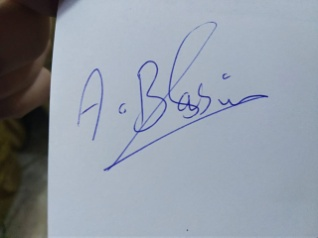 A. Blossin